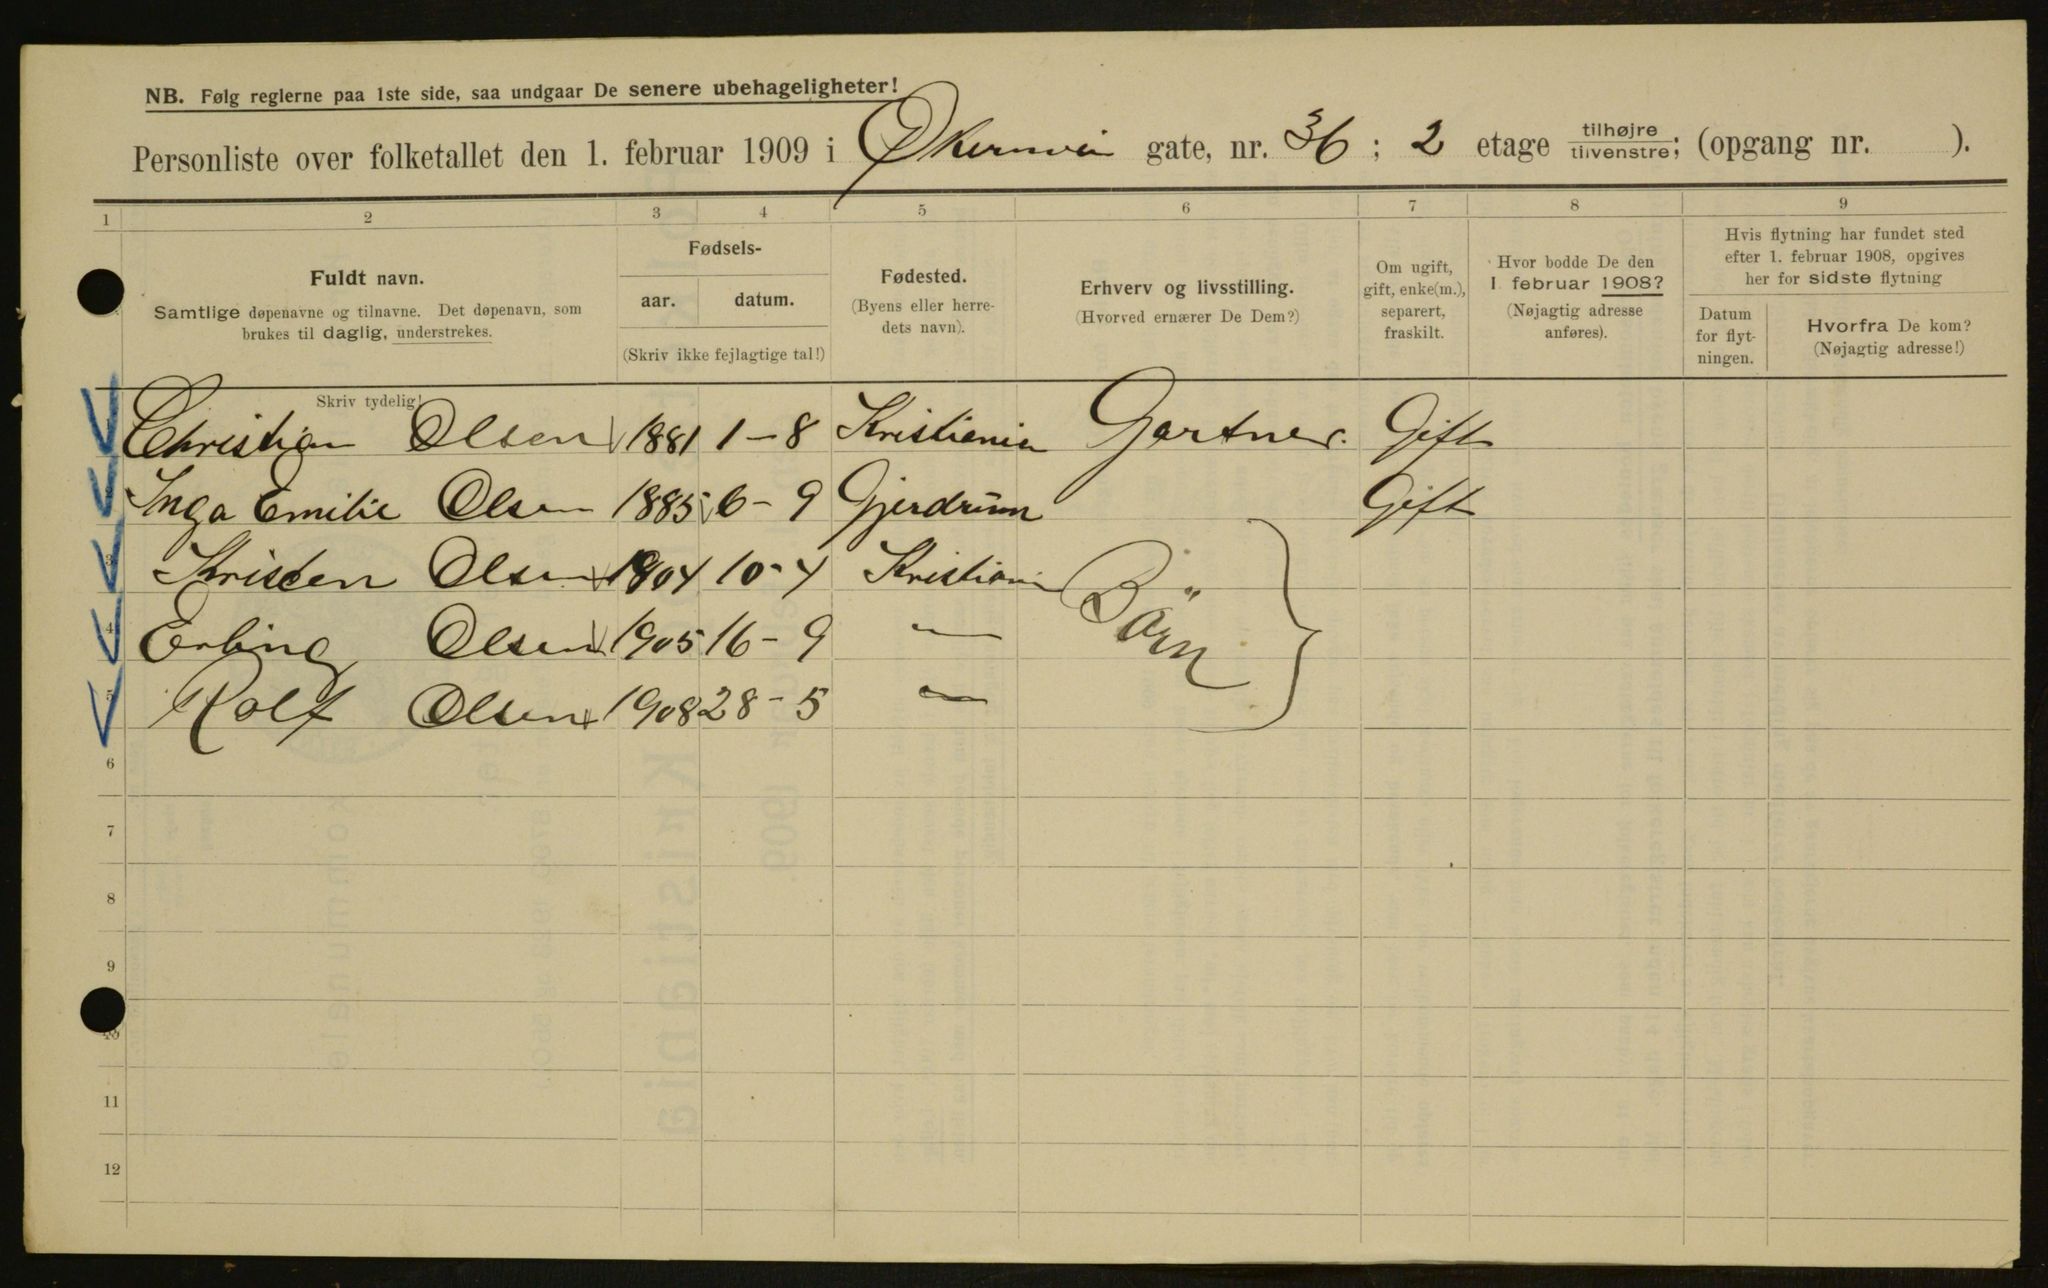 NB. Følg reglerne paa 1ste side, saa undgaar De senere ubehageligheter!
Personliste over folketallet den 1. februar 1909 i Økernvei gate, nr. 36; 2 etage tilhøjre tilvenstre; (opgang nr. ).
1 2 3 4 5 6 7 8 9
Fuldt navn.
Samtlige døpenavne og tilnavne. Det døpenavn, som
brukes til daglig, understrekes.
Fødsels-
aar. datum.
(Skriv ikke fejlagtige tal!)
Fødested.
(Byens eller herre-
dets navn).
Erhverv og livsstilling.
(Hvorved ernærer De Dem?)
Om ugift,
gift, enke(m.),
separert,
fraskilt.
Hvor bodde De den
1. februar 1908?
(Nøjagtig adresse
anføres).
Hvis flytning har fundet sted
efter 1. februar 1908, opgives
her for sidste flytning
Datum
for flyt-
ningen.
Hvorfra De kom?
(Nøjagtig adresse!)
Skriv tydelig!
Christian Olsen 1881 1-8 Kristiania Gartner. Gift
2 Inga Emilie Olsen 1885 6-9 Gjerdrum Gift
3 Kristen Olsen 1904 10-4 Kristiania Börn
4 Erling Olsen 1905 16-9 —
5 Rolf Olsen 1908 28-5 —
6
7
8
9
10
11
12